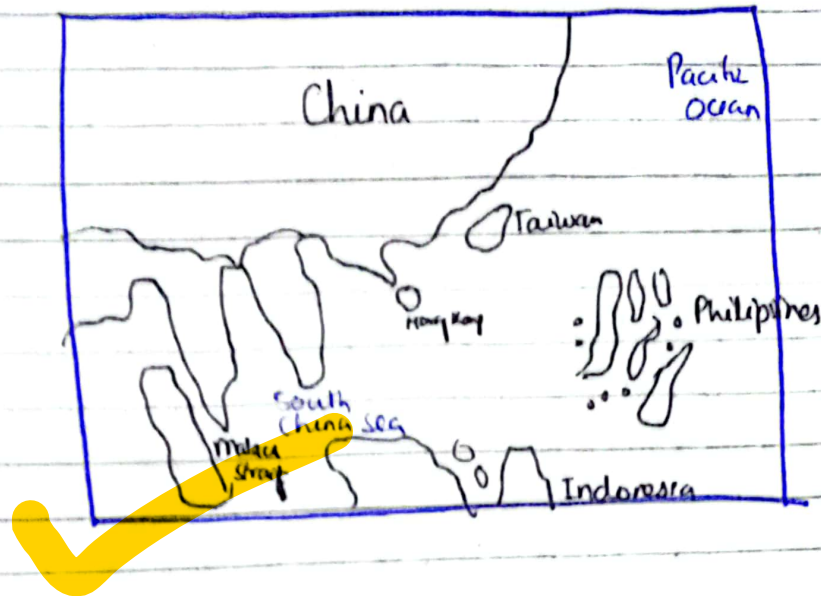 China
Pacific
Ocean
Taiwan
Hong Kong
Philippines
South
China Sea
Malacca
Strait
Indonesia